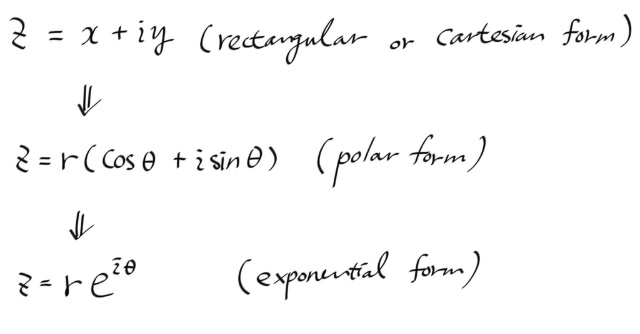 z = x + iy (rectangular or cartesian form)
⇓
z = r(cosθ + i sinθ) (polar form)
⇓
z = re^{iθ} (exponential form)